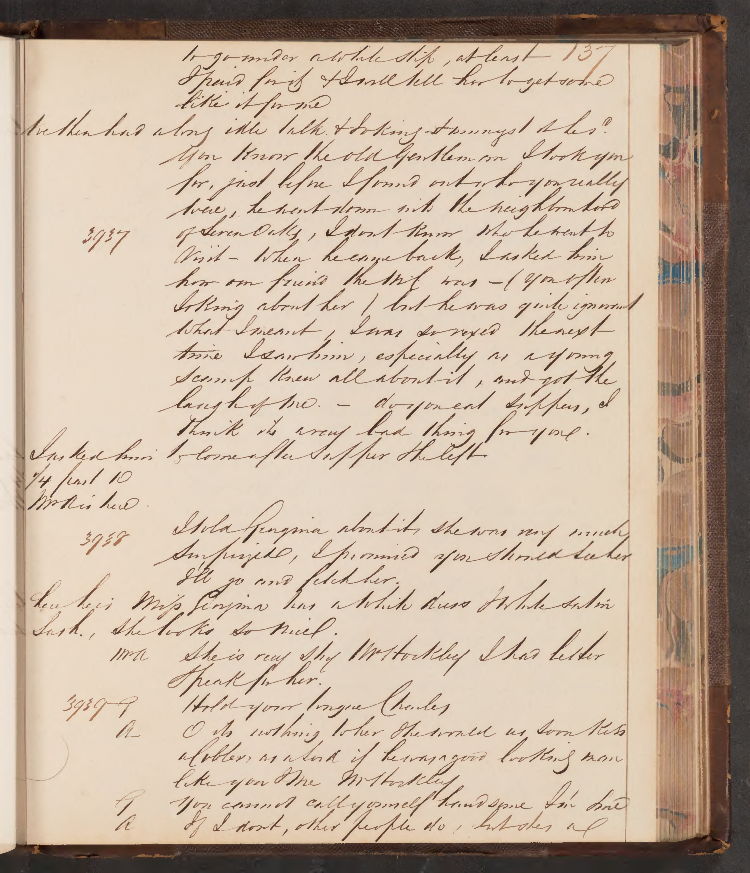 137
to go under a white slip, at least
I paid for it & I will tell her to get some
like it for me
We then had a long idle talk & joking & amongst others
You know the old Gentleman I took you
for, just before I found out who you really
were, he went down into the neighbourhood
3937 of Seven Oaks, I dont know who he went to
Visit - When he came back, I asked him
how our friend the was - (you often
Joking about her) but he was quite ignorant
What I meant, I was so vexed the next
time I saw him, especially as a young
scamp knew all about it, and got the
laugh of me. - do you eat suppers, I
think its a very bad thing for you.
I asked him to come after supper He left
1/4 past 10
Mr R is here
I told Georgina about it, she was very much
3938 surprized, I promised you should see her
I'll go and fetch her.
here he is Miss Georgina has a white dress & white satin
Sash., She looks so nice.
Mr R She is very shy Mr Hockley I had better
speak for her.
3939 G Hold your tongue Charles
R O its nothing to her She would as soon kiss
a Cobler, as a Lord if he was a good looking man
like you & me Mr Hockley
G You cannot call yourself handsome I'm sure
R If I dont, other people do, but shes a